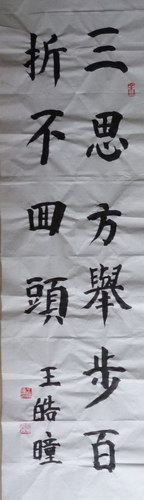 三思方舉步百
折不回頭
王皓曈